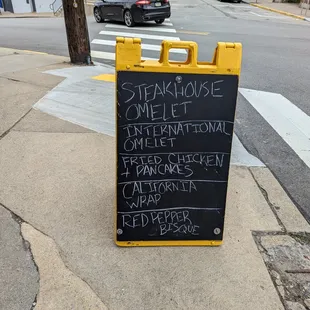 STEAKHOUSE
OMELET
INTERNATIONAL
OMELET
FRIED CHICKEN
+ PANCAKES
CALIFORNIA
WRAP
RED PEPPER
BISQUE